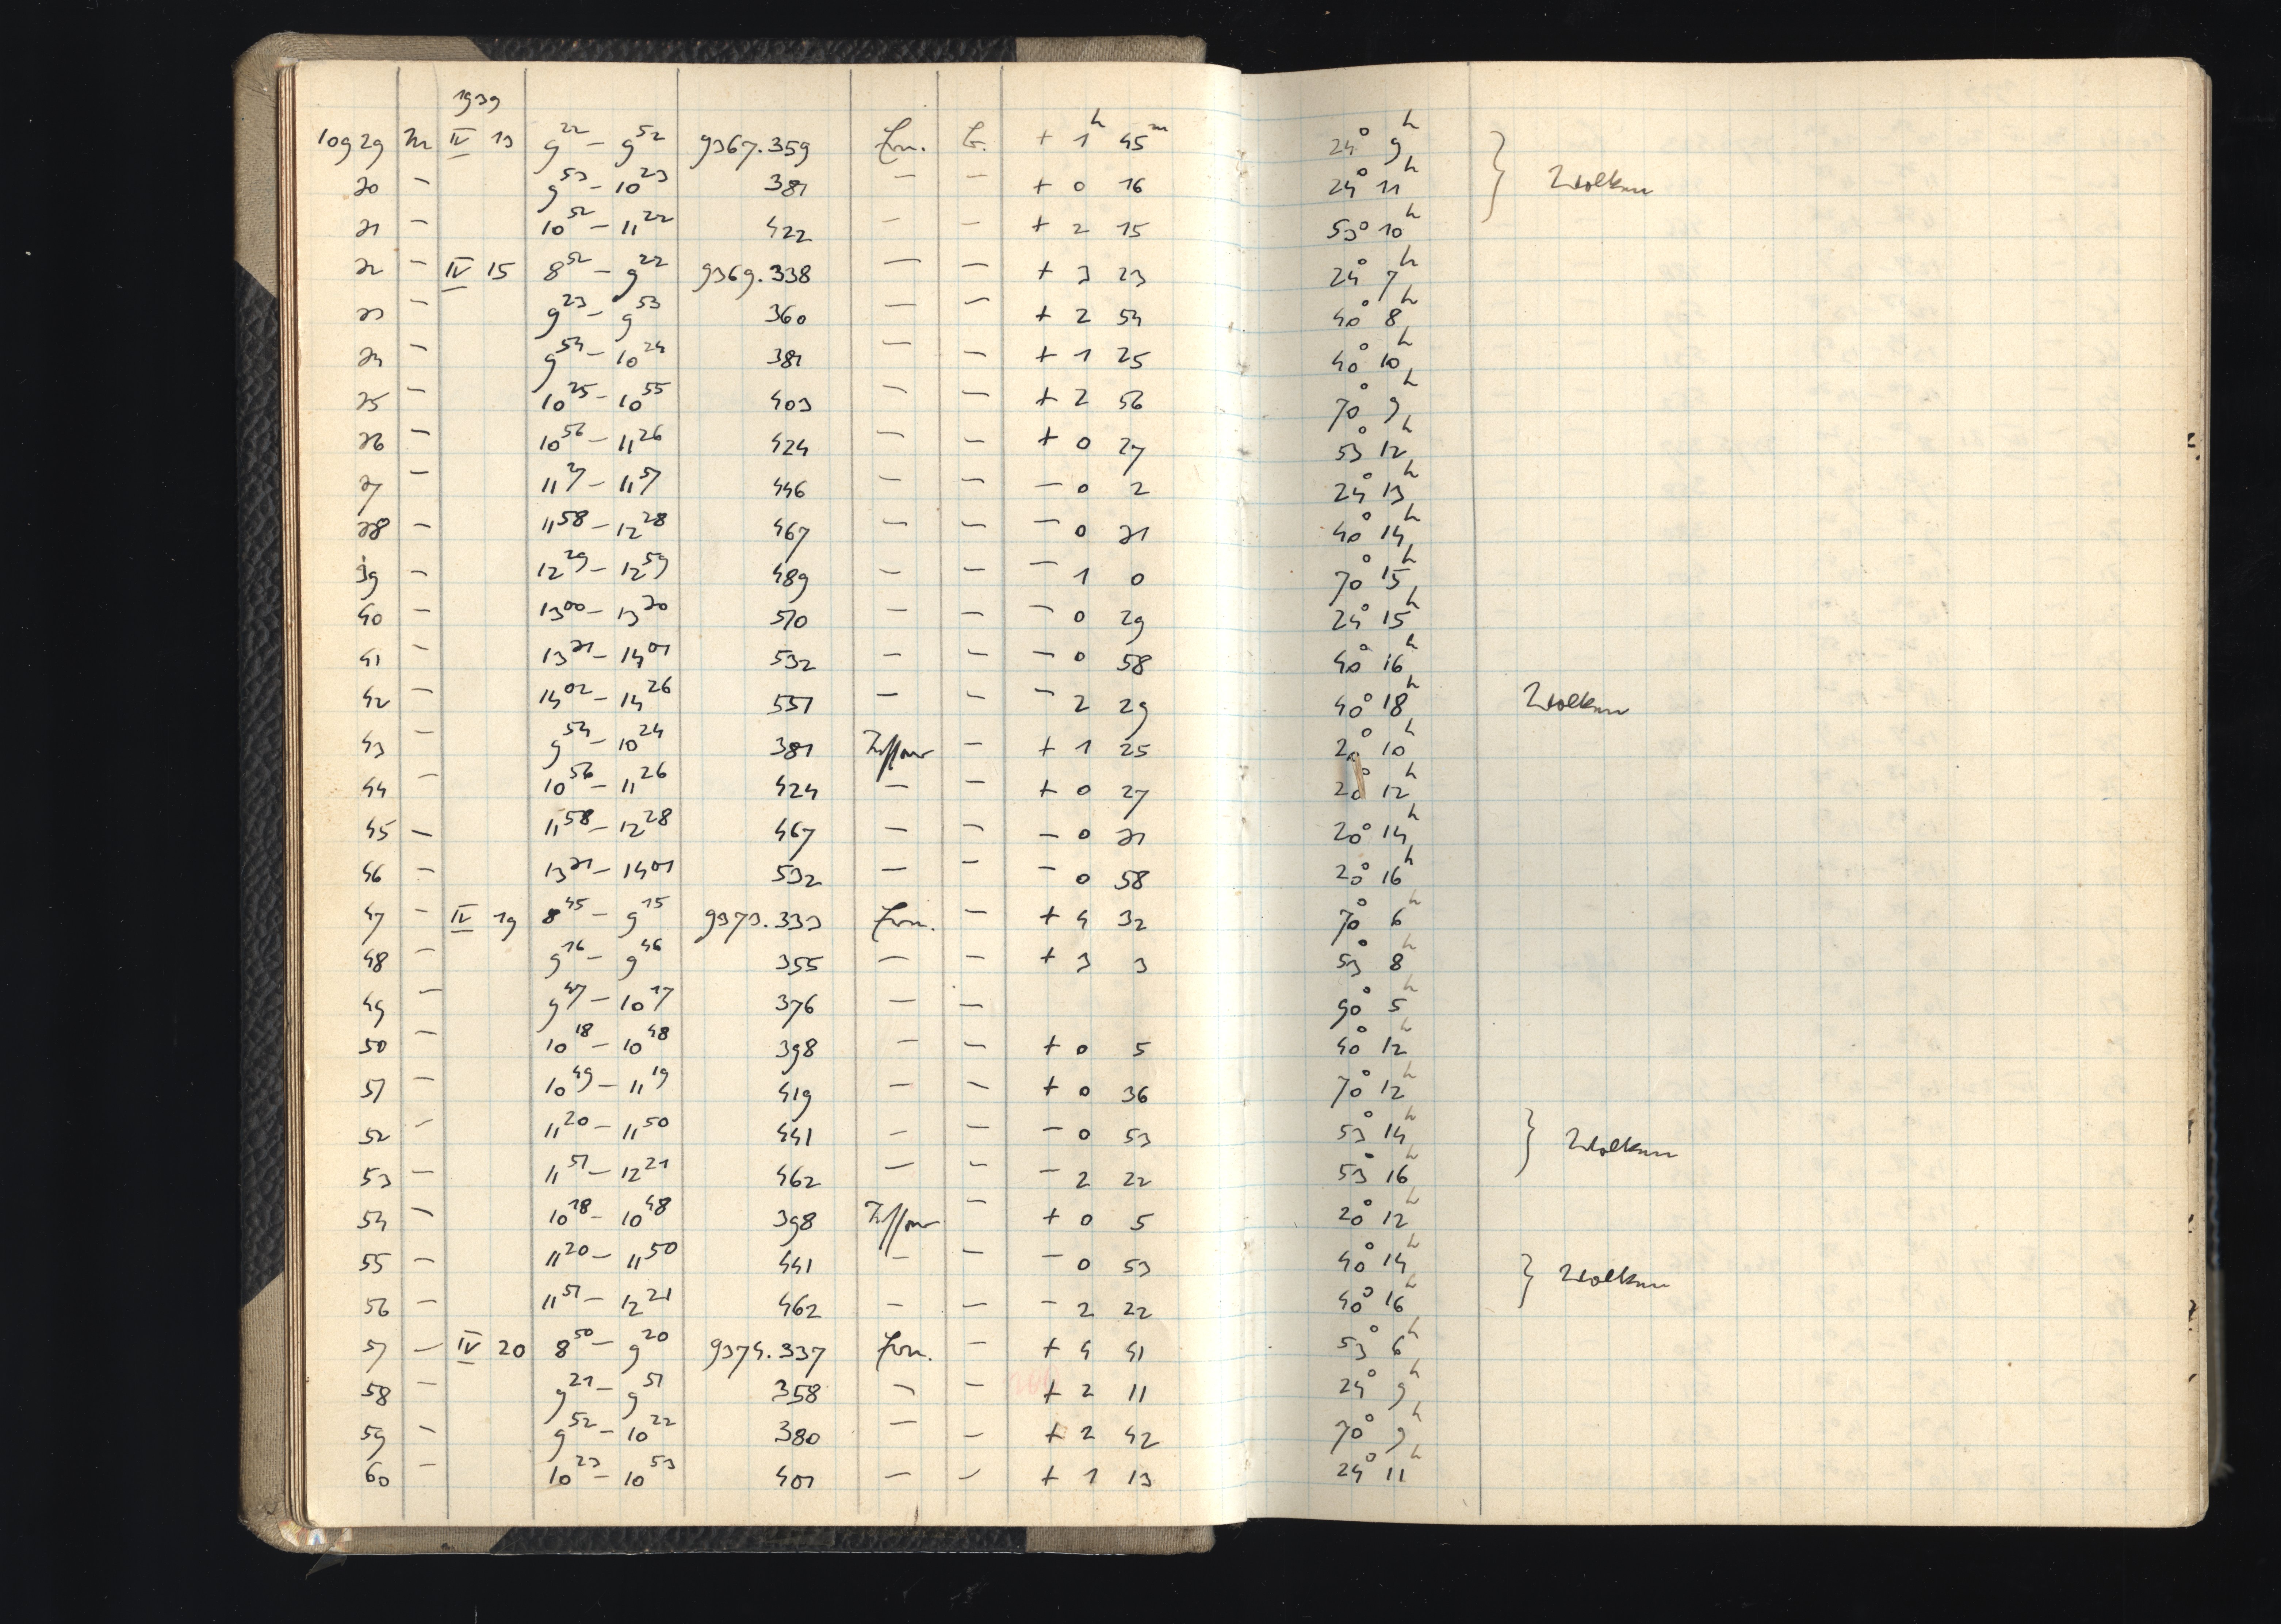 1939
10929 IV 13 9 22 – 9 52 9367.359 + 1 h 45 m 24° 9 h
30 – 9 53 – 10 23 381 – – + 0 16 24° 11 h Wolken
31 – 10 52 – 11 22 422 – – + 2 15 53° 10 h
32 – IV 15 8 52 – 9 22 9369.338 – – + 3 23 24° 7 h
33 – 9 23 – 9 53 360 – – + 2 54 40° 8 h
34 – 9 54 – 10 24 381 – – + 1 25 40° 10 h
35 – 10 25 – 10 55 403 – – + 2 56 70° 9 h
36 – 10 56 – 11 26 424 – – + 0 27 53° 12 h
37 – 11 27 – 11 57 446 – – – 0 2 24° 13 h
38 – 11 58 – 12 28 467 – – – 0 31 40° 14 h
39 – 12 29 – 12 59 489 – – – 1 0 70° 15 h
40 – 13 00 – 13 30 510 – – – 0 29 24° 15 h
41 – 13 31 – 14 01 532 – – – 0 58 40° 16 h
42 – 14 02 – 14 26 551 – – – 2 29 40° 18 h Wolken
43 – 9 54 – 10 24 381 – + 1 25 20° 10 h
44 – 10 56 – 11 26 424 – – + 0 27 20° 12 h
45 – 11 58 – 12 28 467 – – – 0 31 20° 14 h
46 – 13 31 – 14 01 532 – – – 0 58 20° 16 h
47 – IV 19 8 45 – 9 15 9373.333 – + 4 32 70° 6 h
48 – 9 16 – 9 46 355 – – + 3 3 53° 8 h
49 – 9 47 – 10 17 376 – – 90° 5 h
50 – 10 18 – 10 48 398 – – + 0 5 40° 12 h
51 – 10 49 – 11 19 419 – – + 0 36 70° 12 h
52 – 11 20 – 11 50 441 – – – 0 53 53° 14 h Wolken
53 – 11 51 – 12 21 462 – – – 2 22 53° 16 h
54 – 10 18 – 10 48 398 – + 0 5 20° 12 h
55 – 11 20 – 11 50 441 – – – 0 53 40° 14 h Wolken
56 – 11 51 – 12 21 462 – – – 2 22 40° 16 h
57 – IV 20 8 50 – 9 20 9374.337 – + 4 41 53° 6 h
58 – 9 21 – 9 51 358 – – + 2 11 24° 9 h
59 – 9 52 – 10 22 380 – – + 2 42 70° 9 h
60 – 10 23 – 10 53 401 – – + 1 13 24° 11 h